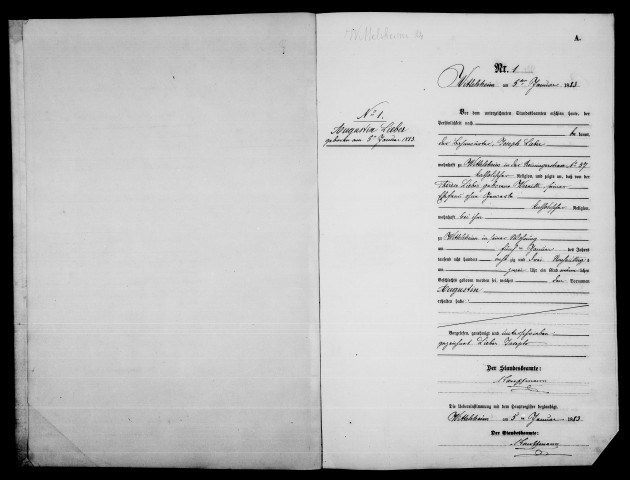 Wittelsheim
A.
Nr. 1
Wittelsheim am 5ten Januar 1883
No 1.
Augustin Lieber
geboren am 5ten Januar 1883
Vor dem unterzeichneten Standesbeamten erschien heute, der
Persönlichkeit nach
be kannt,
der Joseph Lieber
wohnhaft zu Wittelsheim in der No 27
katholischer Religion, und zeigte an, daß von der
Lieber geborene seiner
Ehefrau ohne Gewerbe
katholischer Religion,
wohnhaft bei ihm
zu Wittelsheim in seiner Wohnung
am fünften Januar des Jahres
tausend acht hundert acht zig und drei Vormittag s
um zwei Uhr ein Kind männ lichen
Geschlechts geboren worden sei, welches den Vornamen
Augustin
erhalten habe
Vorgelesen, genehmigt und unterschrieben
gezeichnet Lieber Joseph
Der Standesbeamte:
Kauffmann
Die Uebereinstimmung mit dem Hauptregister beglaubigt
Wittelsheim am 5ten Januar 1883
Der Standesbeamte:
Kauffmann